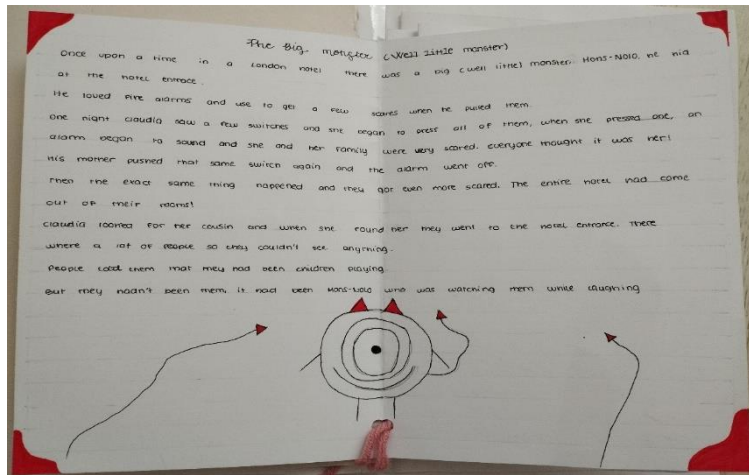 The Big monster (well little monster)
Once upon a time in a London hotel there was a big (well little) monster. Mons-Nolo, he hid
at the hotel entrace.
He loved fire alarms and use to get a few scares when he pulled them.
One night claudia saw a few switches and she began to press all of them, when she pressed one, an
alarm began to sound and she and her family were very scared. everyone thought it was her!
His mother pushed that same switch again and the alarm went off.
Then the exact same thing happened and they got even more scared. The entire hotel had come
out of their rooms!
claudia looked for her cousin and when she found her they went to the hotel entrance. There
where a lot of people so they couldn't see anything.
People told them that they had been children playing.
But they hadn't been them, it had been Mons-Nolo who was watching them while laughing